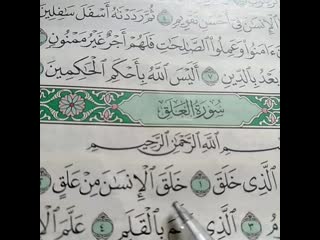 الْإِنسَٰنَ فِىٓ أَحْسَنِ تَقْوِيمٍ ٤ ثُمَّ رَدَدْنَٰهُ أَسْفَلَ سَٰفِلِينَ
ءَامَنُوا۟ وَعَمِلُوا۟ الصَّٰلِحَٰتِ فَلَهُمْ أَجْرٌ غَيْرُ مَمْنُونٍ
بَعْدُ بِالدِّينِ ٧ أَلَيْسَ اللَّهُ بِأَحْكَمِ الْحَٰكِمِينَ
سُورَةُ الْعَلَقِ
اللَّهِ الرَّحْمَٰنِ الرَّحِيمِ
الَّذِى خَلَقَ ١ خَلَقَ الْإِنسَٰنَ مِنْ عَلَقٍ
٣ الَّذِى بِالْقَلَمِ ٤ عَلَّمَ